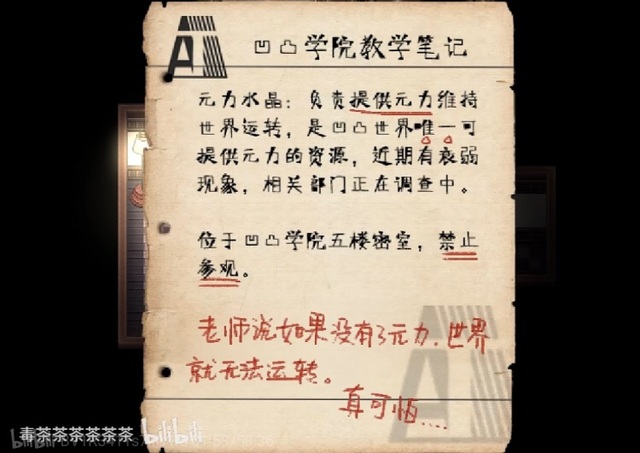 凹凸学院教学笔记
元力水晶：负责提供元力维持
世界运转，是凹凸世界唯一可
提供元力的资源，近期有衰弱
现象，相关部门正在调查中。
位于凹凸学院五楼密室，禁止
参观。
老师说如果没有了元力，世界
就无法运转。
真可怕....
毒茶茶茶茶茶茶 bilibili